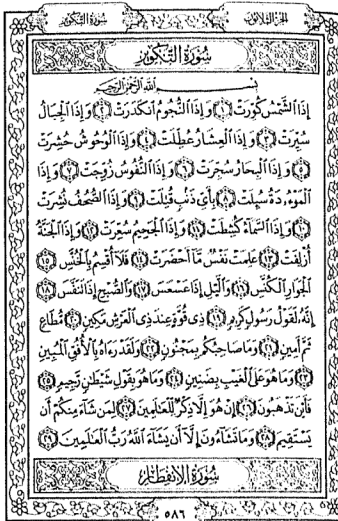 الجزء الثلاثون
سورة التكوير
سُورَةُ التَّكْوِيرِ
بِسْمِ اللَّهِ الرَّحْمَٰنِ الرَّحِيمِ
إِذَا الشَّمْسُ كُوِّرَتْ ١ وَإِذَا النُّجُومُ انكَدَرَتْ ٢ وَإِذَا الْجِبَالُ
سُيِّرَتْ ٣ وَإِذَا الْعِشَارُ عُطِّلَتْ ٤ وَإِذَا الْوُحُوشُ حُشِرَتْ
٥ وَإِذَا الْبِحَارُ سُجِّرَتْ ٦ وَإِذَا النُّفُوسُ زُوِّجَتْ ٧ وَإِذَا
الْمَوْءُۥدَةُ سُئِلَتْ ٨ بِأَيِّ ذَنبٍ قُتِلَتْ ٩ وَإِذَا الصُّحُفُ نُشِرَتْ
١٠ وَإِذَا السَّمَاءُ كُشِطَتْ ١١ وَإِذَا الْجَحِيمُ سُعِّرَتْ ١٢ وَإِذَا الْجَنَّةُ
أُزْلِفَتْ ١٣ عَلِمَتْ نَفْسٌ مَّا أَحْضَرَتْ ١٤ فَلَا أُقْسِمُ بِالْخُنَّسِ ١٥
الْجَوَارِ الْكُنَّسِ ١٦ وَالَّيْلِ إِذَا عَسْعَسَ ١٧ وَالصُّبْحِ إِذَا تَنَفَّسَ ١٨
إِنَّهُ لَقَوْلُ رَسُولٍ كَرِيمٍ ١٩ ذِي قُوَّةٍ عِندَ ذِي الْعَرْشِ مَكِينٍ ٢٠ مُّطَاعٍ
ثَمَّ أَمِينٍ ٢١ وَمَا صَاحِبُكُم بِمَجْنُونٍ ٢٢ وَلَقَدْ رَءَاهُ بِالْأُفُقِ الْمُبِينِ
٢٣ وَمَا هُوَ عَلَى الْغَيْبِ بِضَنِينٍ ٢٤ وَمَا هُوَ بِقَوْلِ شَيْطَٰنٍ رَّجِيمٍ ٢٥
فَأَيْنَ تَذْهَبُونَ ٢٦ إِنْ هُوَ إِلَّا ذِكْرٌ لِّلْعَالَمِينَ ٢٧ لِمَن شَاءَ مِنكُمْ أَن
يَسْتَقِيمَ ٢٨ وَمَا تَشَاءُونَ إِلَّا أَن يَشَاءَ اللَّهُ رَبُّ الْعَالَمِينَ ٢٩
سُورَةُ الِانفِطَارِ
٥٨٦